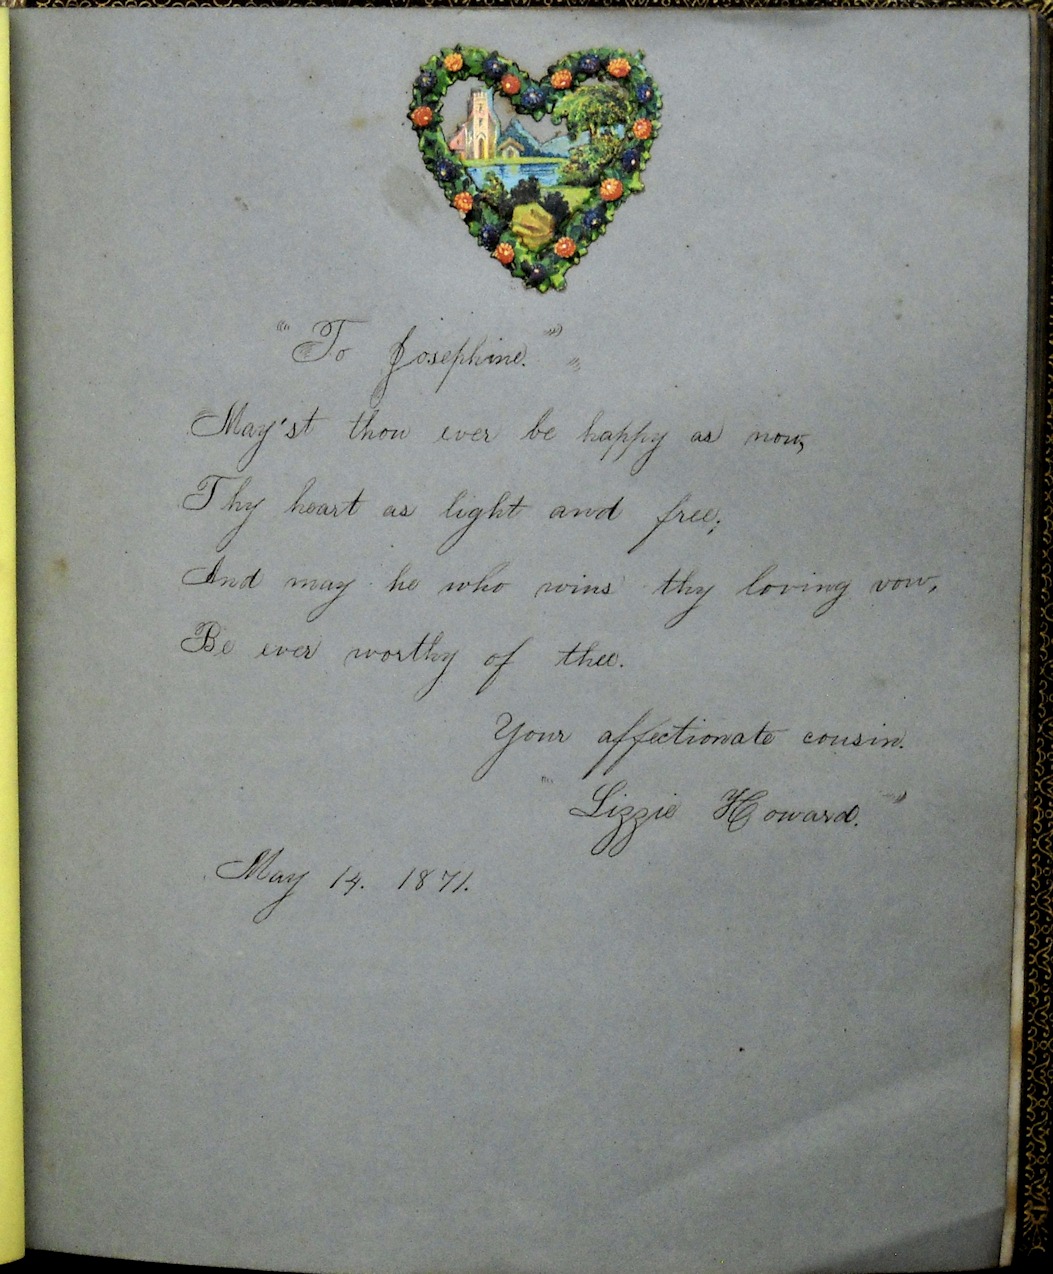 "To Josephine." "
May'st thou ever be happy as now,
Thy heart as light and free;
And may he who wins thy loving vow,
Be ever worthy of thee.
Your affectionate cousin.
"Lizzie Howard."
May 14. 1871.